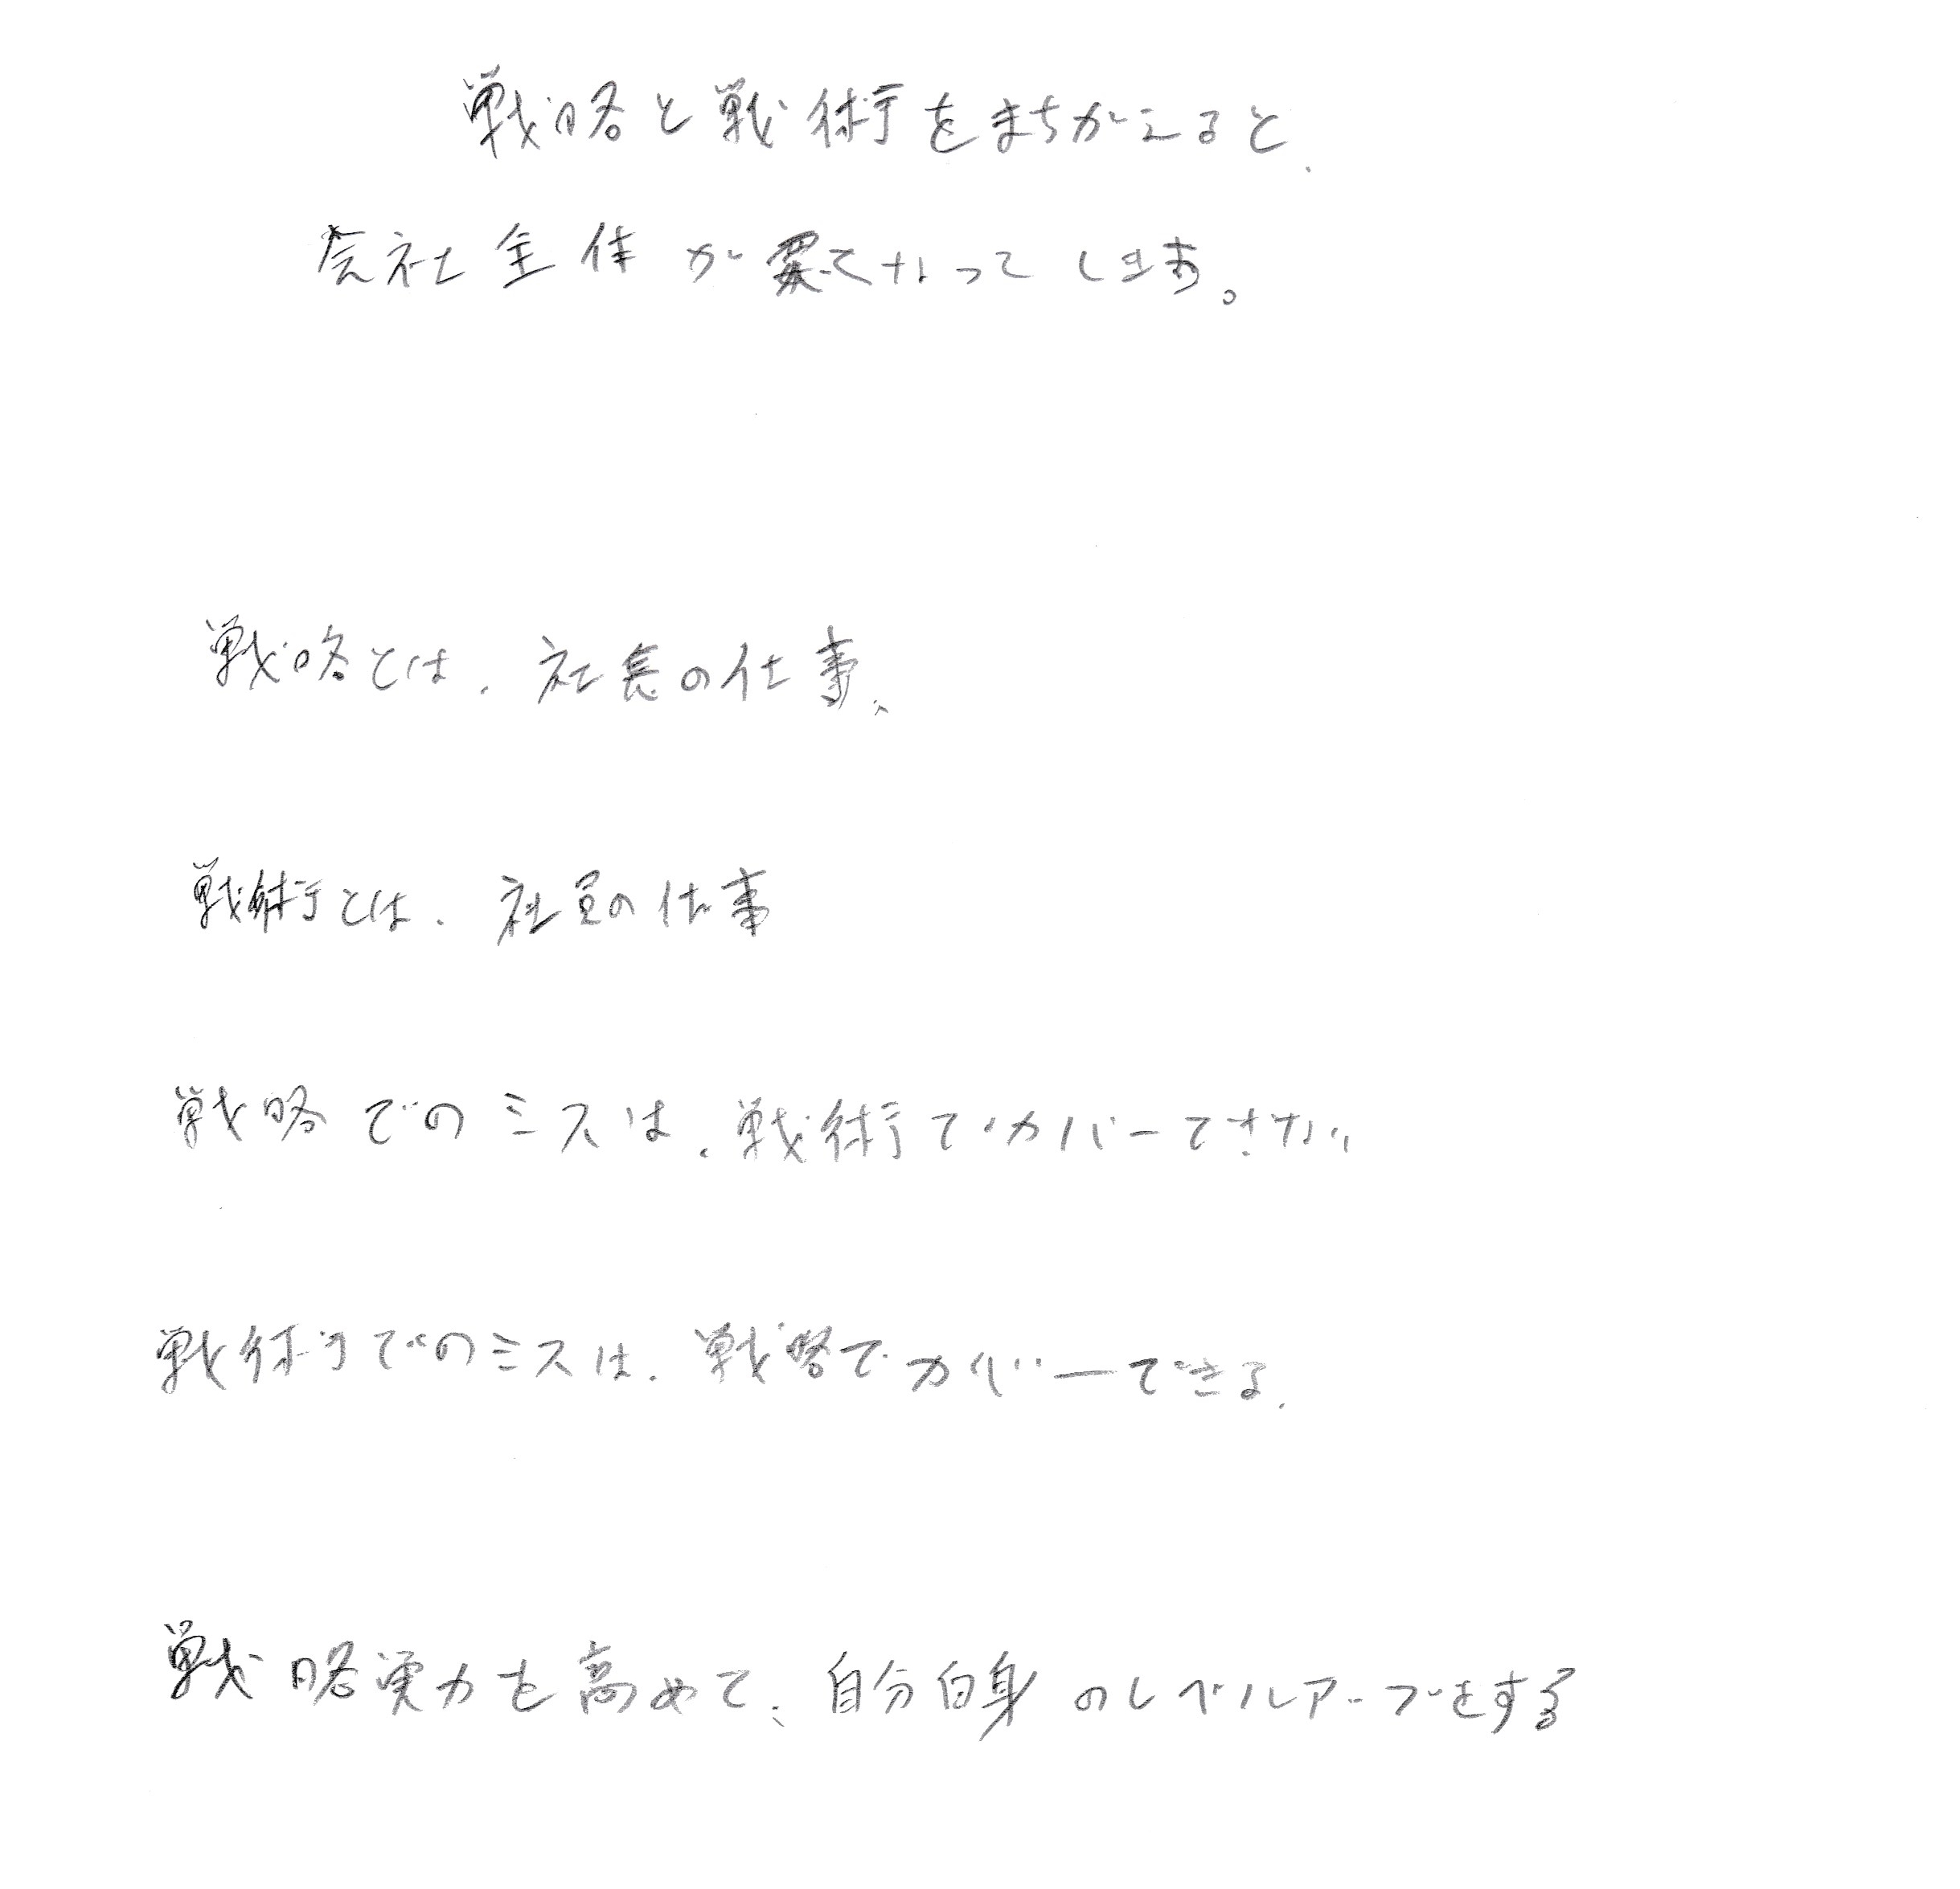 戦略と戦術をまちがえると、
会社全体が悪くなってします。
戦略とは、社長の仕事、
戦術とは、社員の仕事
戦略でのミスは、戦術でカバーできない
戦術でのミスは、戦略でカバーできる。
戦略実力を高めて、自分自身のレベルアップをする